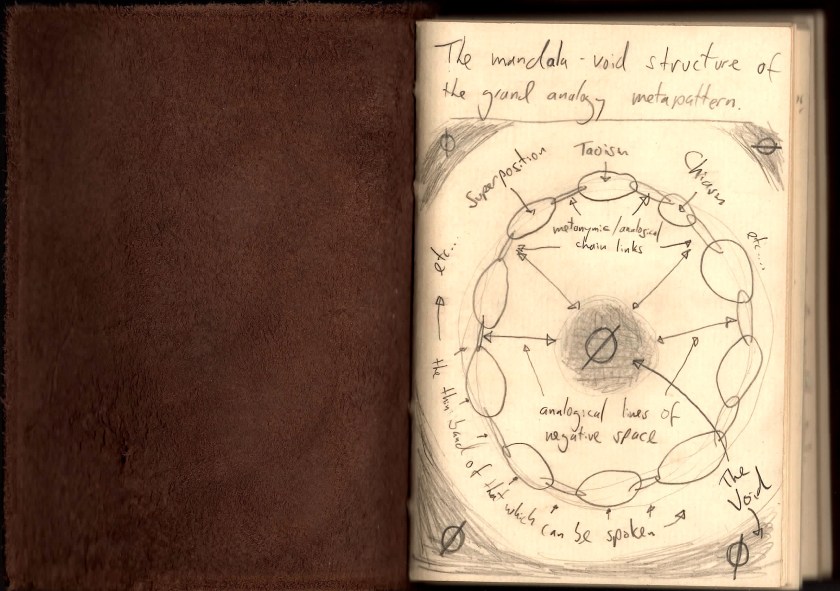 The mandala-void structure of
the grand analogy metapattern.
Ø
Ø
Superposition
Taoism
Chiasm
metonymic/analogical
chain links
etc...
etc....
Ø
analogical lines of
negative space
the thin band of that which can be spoken
The
Void
Ø
Ø